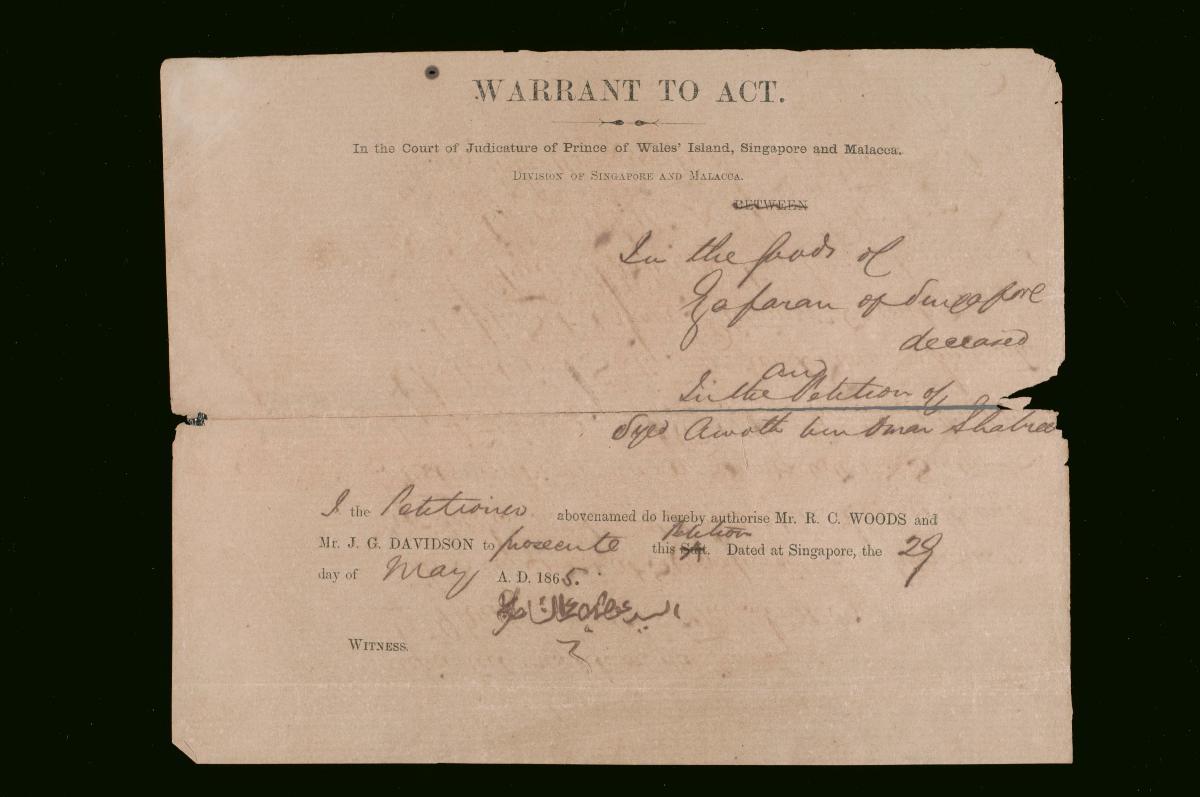 WARRANT TO ACT.
In the Court of Judicature of Prince of Wales' Island, Singapore and Malacca.
DIVISION OF SINGAPORE AND MALACCA.
BETWEEN
In the Goods of
Zafaran of Singapore
deceased
and
In the Petition of
Syed Awoth bin Omar Shatrie
I the Petitioner abovenamed do hereby authorise Mr. R. C. WOODS and
Mr. J. G. DAVIDSON to prosecute this Suit. Petition Dated at Singapore, the 29
day of May A. D. 1865.
السيد
WITNESS.